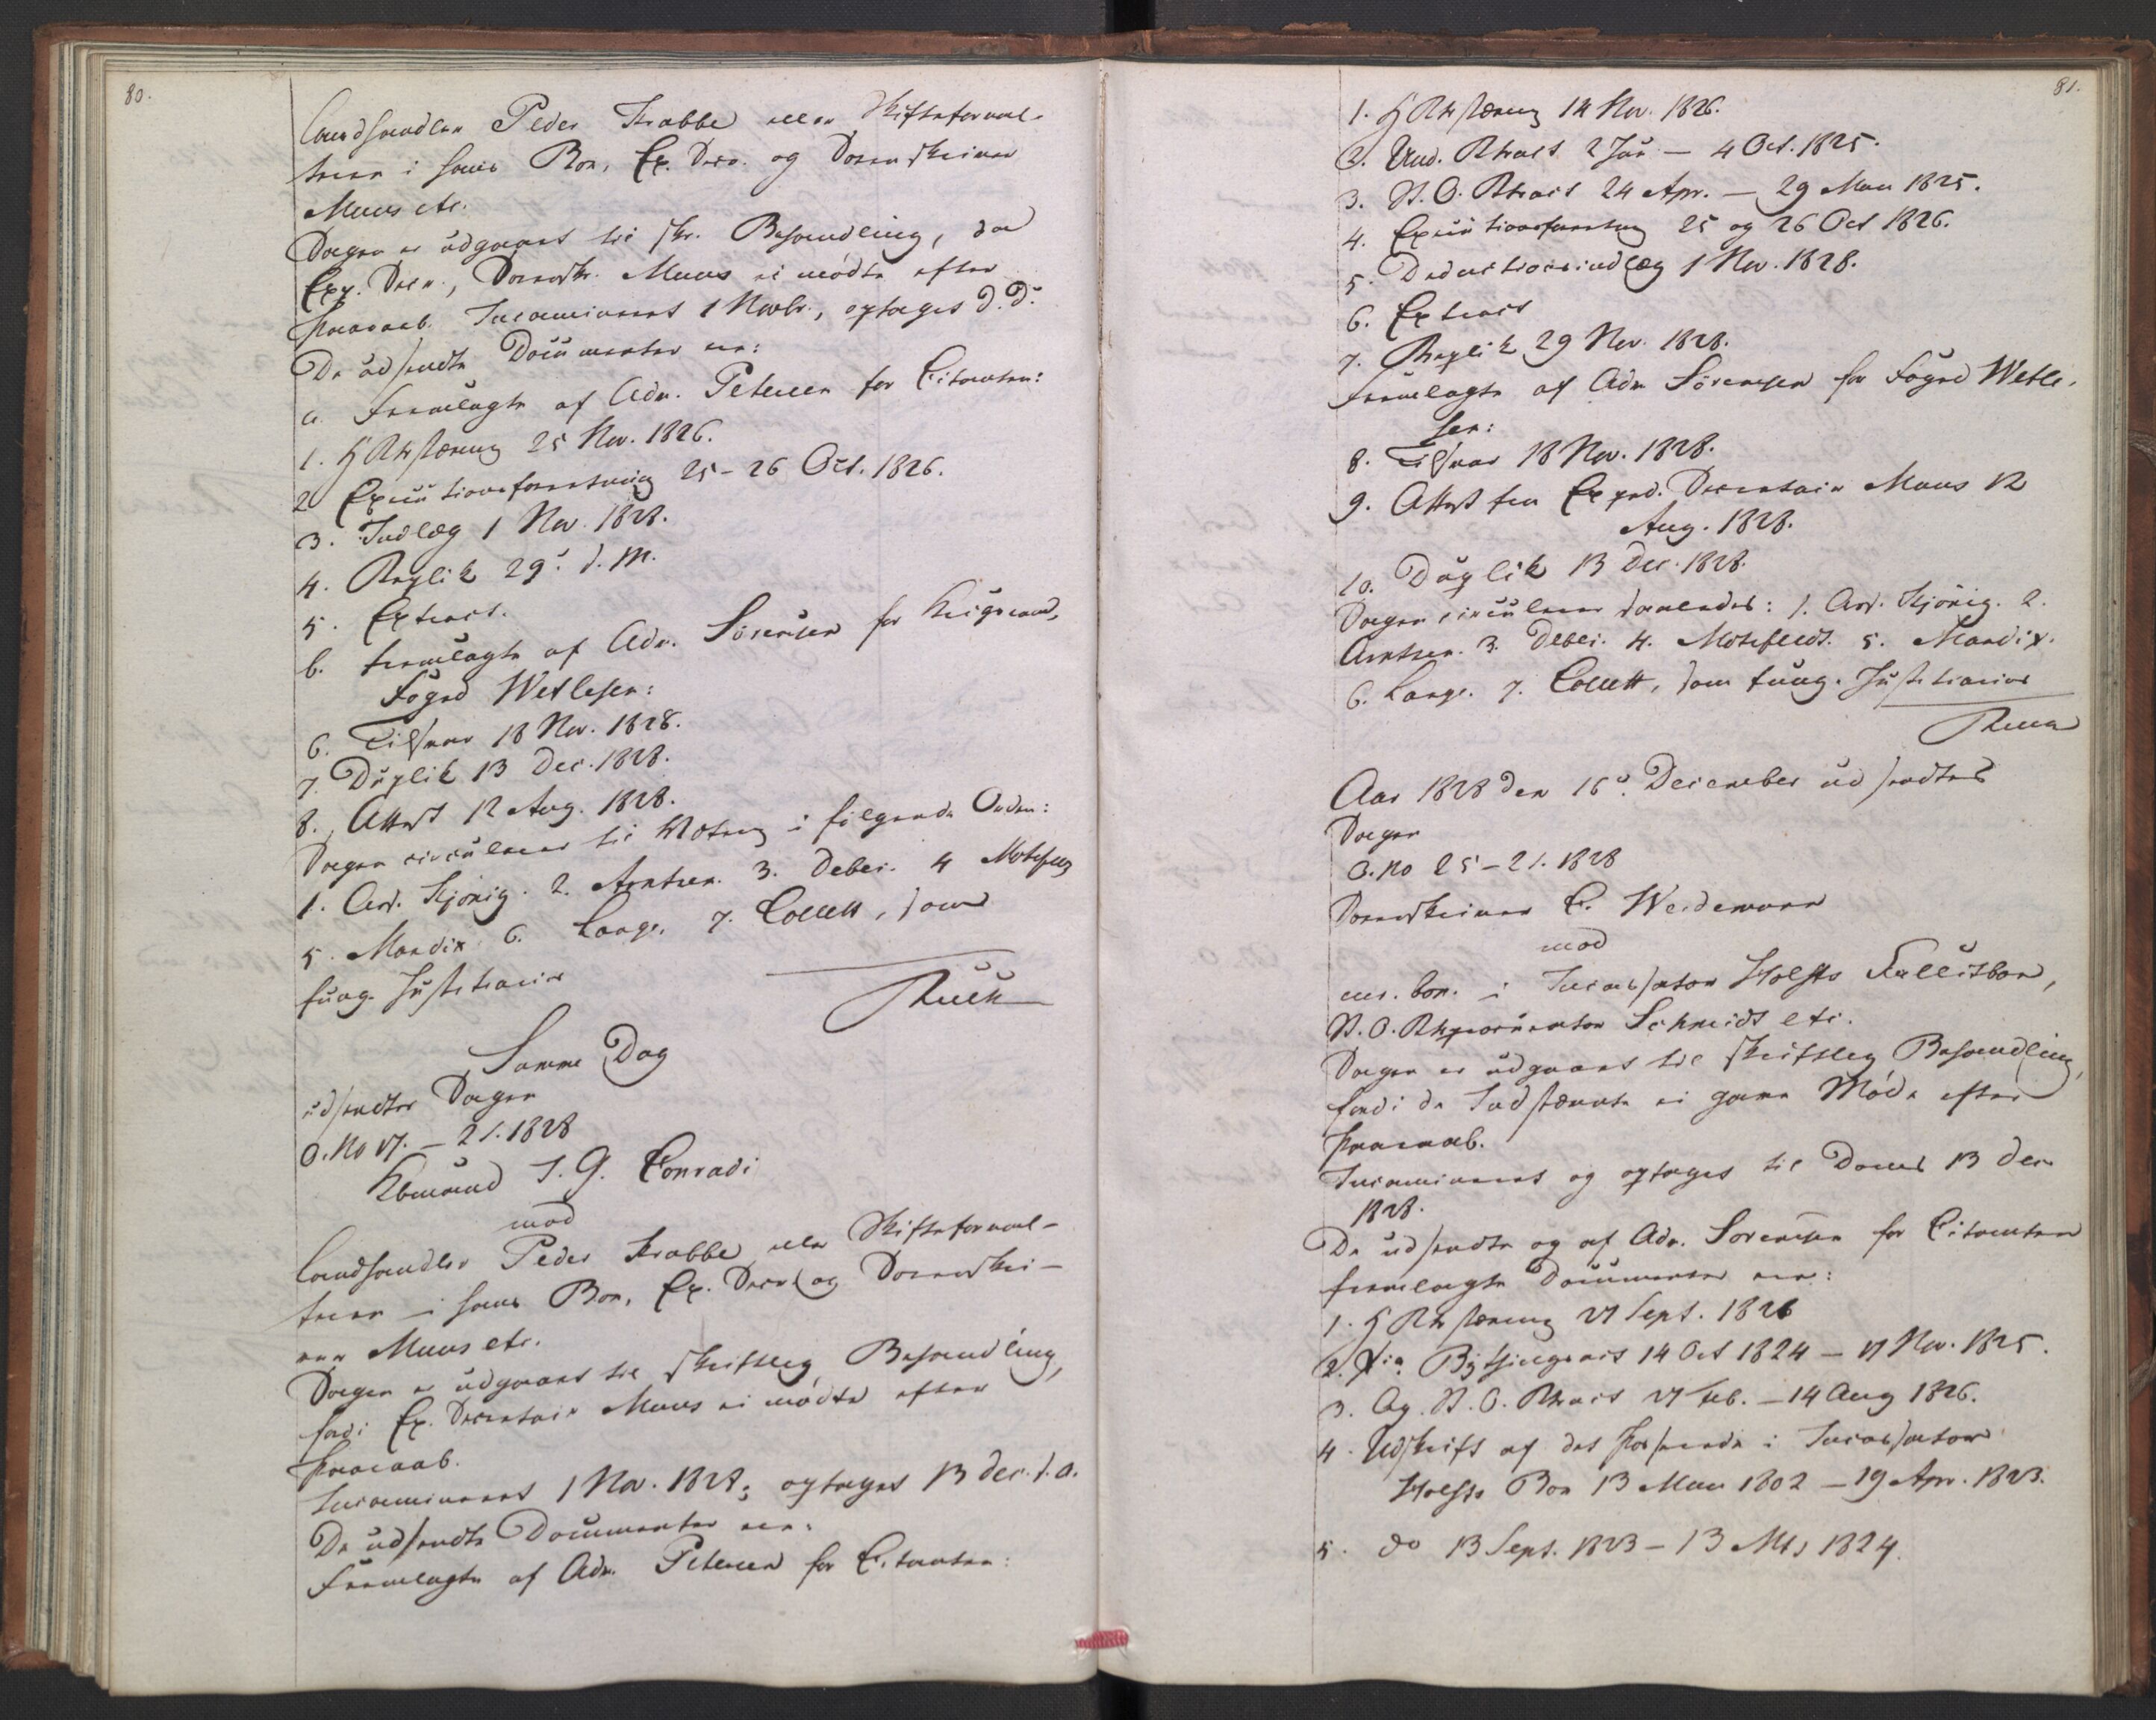 80.
Landhandler Peder Krabbe eller Skifteforval-
teren i hans Boe, Ex. Secr. og Sorenskriver
Muus etc.
Sagen er udgaaet til skr. Behandling, da
Exp. Secr., Sorenskr. Muus ei mødte efter
Paaraab. Incamineret 1 Novbr., optaget D. D.
De udsendte Documenter ere:
a. Fremlagte af Adv. Petersen for Citanten:
1. HRstevning 25 Nov. 1826.
2 Executionsforretning 25 – 26 Oct. 1826.
3. Indlæg 1 Nov. 1828.
4. Replik 29. s. M.
5. Extract.
b. fremlagte af Adv. Sørensen for Krigsraad,
Foged Wetlesen:
6. Tilsvar 18 Nov. 1828.
7. Duplik 13 Dec. 1828.
8. Attest 12 Aug. 1828.
Sagen circulerer til Votering i følgende Orden:
1. Ass. Kjønig. 2. Arntzen. 3. Debes. 4 Motzfeldt
5. Mandix 6. Lange. 7. Collett, som
fung. Justitiarius
Samme Dag
udsendtes Sagen
O. No 17. – 21. 1828
Kbmand J. G. Conradi
mod
Landhandler Peder Krabbe eller Skifteforval-
teren i hans Boe, Ex. Secr. og Sorenskri-
ver Muus etc.
Sagen er udgaaet til skriftlig Behandling,
fordi Ex. Secretair Muus ei mødte efter
Paaraab.
Incamineret 1 Nov. 1828; optaget 13 Dec. s. A.
De udsendte Documenter ere:
Fremlagte af Adv. Petersen for Citanten:
81.
1. HRstevning 14 Nov. 1826.
2. Und. Rtsact 2 Jan – 4 Oct. 1825.
3. St. O. Rtsact 24 Apr. – 29 Mai 1825.
4. Executionsforretning 25 og 26 Oct 1826.
5. Deductionsindlæg 1 Nov. 1828.
6. Extract
7. Replik 29 Nov. 1828.
Fremlagte af Adv Sørensen for Foged Wetle-
sen:
8. Tilsvar 18 Nov. 1828.
9. Attest fra Exped. Secretair Muus 12
Aug. 1828.
10. Duplik 13 Dec. 1828.
Sagen circulerer saaledes: 1. Ass. Kjönig. 2.
Arntzen. 3. Debes. 4. Motzfeldt. 5. Mandix.
6. Lange. 7. Collett, som fung. Justitiarius
Aar 1828 den 16. December udsendtes
Sagen
O. No 25 – 21. 1828
Sorenskriver C. Weidemann
mod
i Incassator Holsts Fallitboe,
St. O. Rtsprocurator Schmidt etc.
Sagen er udgaaet til skriftlig Behandling,
fordi de Indstevnte ei gave Møde efter
Paaraab.
Incamineret og optaget til Doms 13 Dec
1828.
De udsendte og af Adv. Sørensen for Citanten
fremlagte Documenter ere:
1. HRstevning 27 Sept. 1826
2. Bytingsact 14 Oct 1824 – 17 Nov. 1825.
3. Ag. St. O. Rtsact 27 Feb. – 14 Aug 1826.
4. Udskrift af det Passerede i Incassator
Holsts Boe 13 Mai 1802 – 19 Apr. 1823.
5. do 13 Sept. 1823 – 13 Mts 1824.